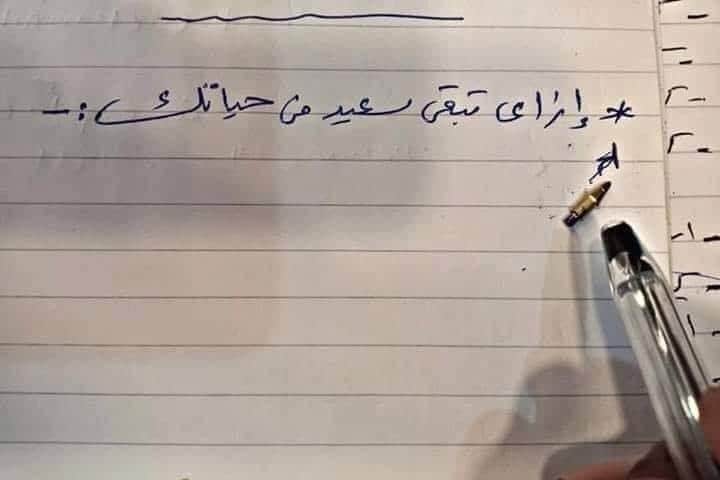 * إزاى تبقى سعيد فى حياتك :-